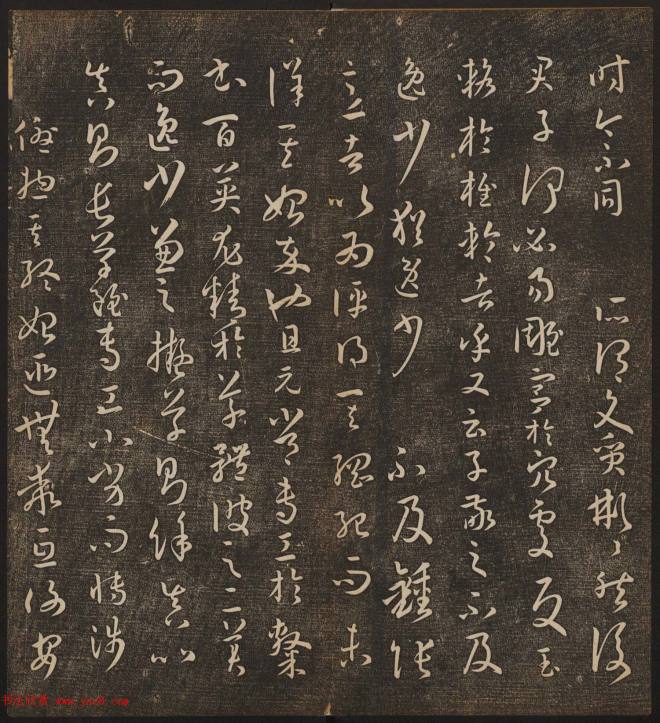 时今不同所谓文质彬彬然后
君子何必易雕宫於穴处反玉
辂於椎轮者乎又云子敬之不及
逸少犹逸少不及钟张
意者以为评得其纲纪而未
详其始卒也且元常专工於隶
书百英尤精於草体彼之二美
而逸少兼之拟草则馀真比
真则长草虽专工小劣而博涉
优总其终始匪无乖互谢安